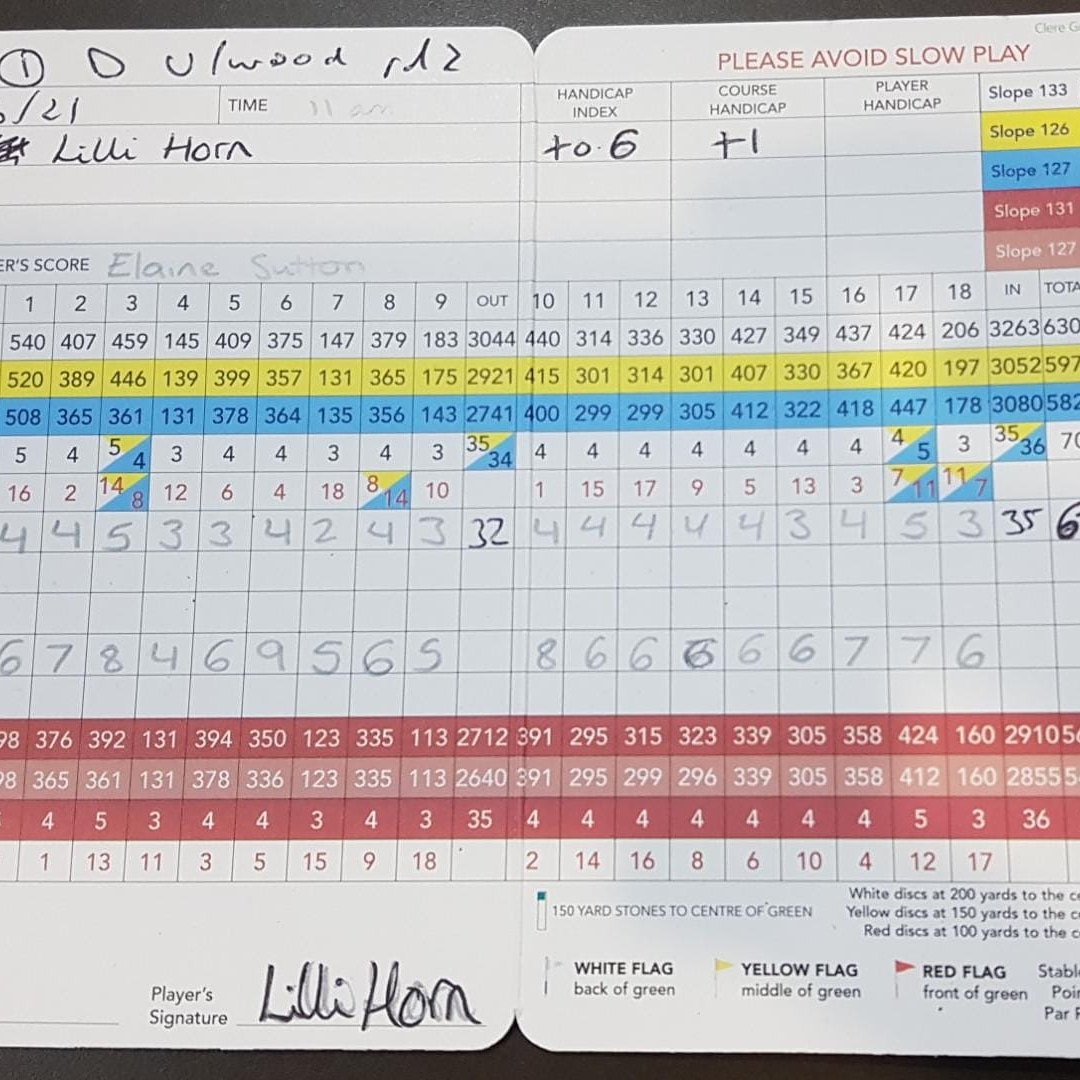 Clere G
① D U/wood rd2
PLEASE AVOID SLOW PLAY
/21 TIME 11 am HANDICAP INDEX COURSE HANDICAP PLAYER HANDICAP Slope 133
Lilli Horn +0.6 +1 Slope 126
Slope 127
Slope 131
ER'S SCORE Elaine Sutton Slope 127
1 2 3 4 5 6 7 8 9 OUT 10 11 12 13 14 15 16 17 18 IN TOTA
540 407 459 145 409 375 147 379 183 3044 440 314 336 330 427 349 437 424 206 3263 630
520 389 446 139 399 357 131 365 175 2921 415 301 314 301 407 330 367 420 197 3052 597
508 365 361 131 378 364 135 356 143 2741 400 299 299 305 412 322 418 447 178 3080 582
5 4 5 4 3 4 4 3 4 3 35 34 4 4 4 4 4 4 4 4 5 3 35 36 70
16 2 14 8 12 6 4 18 8 14 10 1 15 17 9 5 13 3 7 11 11 7
4 4 5 3 3 4 2 4 3 32 4 4 4 4 4 3 4 5 3 35 6
6 7 8 4 6 9 5 6 5 8 6 6 6 6 6 7 7 6
98 376 392 131 394 350 123 335 113 2712 391 295 315 323 339 305 358 424 160 2910 56
98 365 361 131 378 336 123 335 113 2640 391 295 299 296 339 305 358 412 160 2855 5
4 5 3 4 4 3 4 3 35 4 4 4 4 4 4 4 5 3 36
1 13 11 3 5 15 9 18 2 14 16 8 6 10 4 12 17
150 YARD STONES TO CENTRE OF GREEN
White discs at 200 yards to the ce
Yellow discs at 150 yards to the c
Red discs at 100 yards to the c
WHITE FLAG YELLOW FLAG RED FLAG Stabl
back of green middle of green front of green Poi
Par
Player's
Signature Lilli Horn